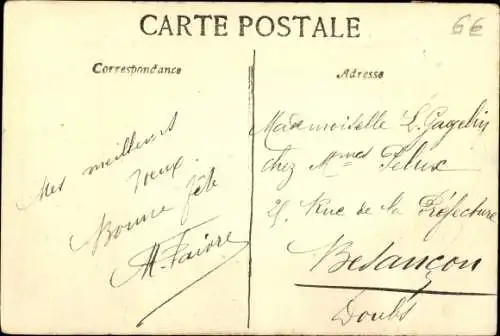 CARTE POSTALE
6€
Correspondance
Mes meilleurs
voeux.
Bonne fête
M. Faivre
Adresse
Mademoiselle L. Gagelin
chez Mmes
25, Rue de la Préfecture
Besançon
Doubs